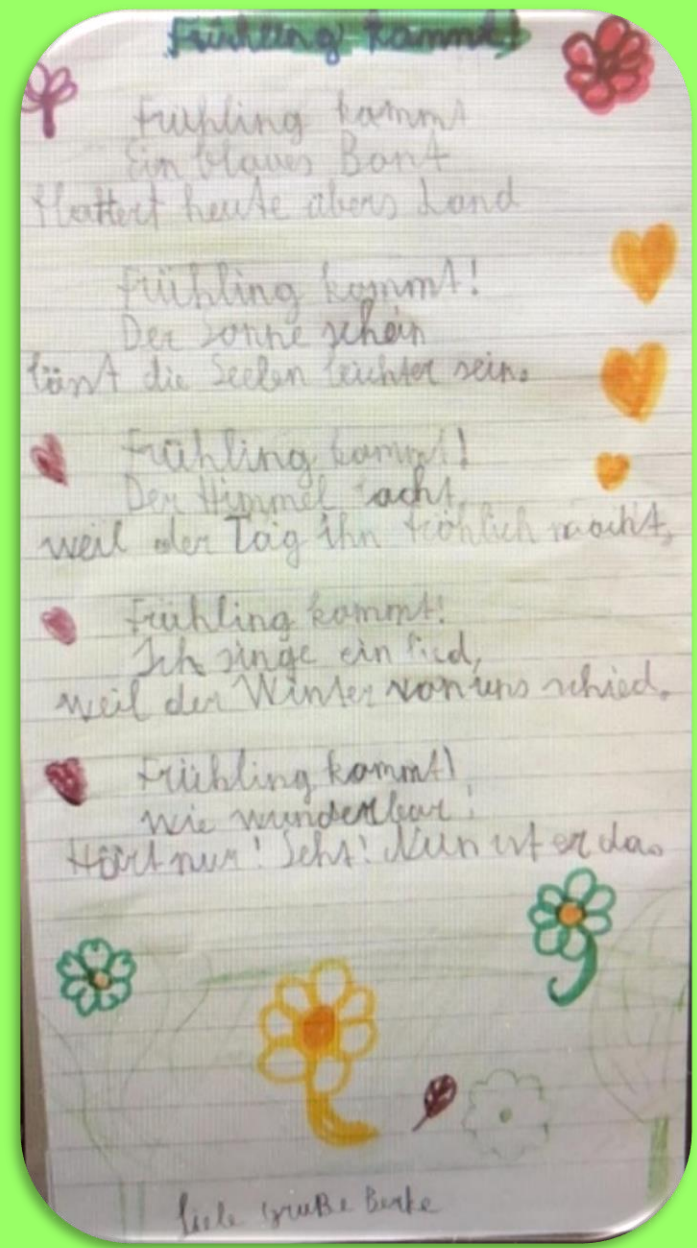 Frühling kommt!
Frühling kommt
Ein blaues Bant
flattert heute übers Land
Frühling kommt!
Der Sonne schein
lässt die Seelen leichter sein.
Frühling kommt!
Der Himmel lacht,
weil der Tag ihn fröhlich macht,
Frühling kommt!
Ich singe ein lied,
weil der Winter von uns schied.
Frühling kommt!
wie wunderbar!
Hört nur! Seht! Nun ist er da.
Liele Grüße Berke